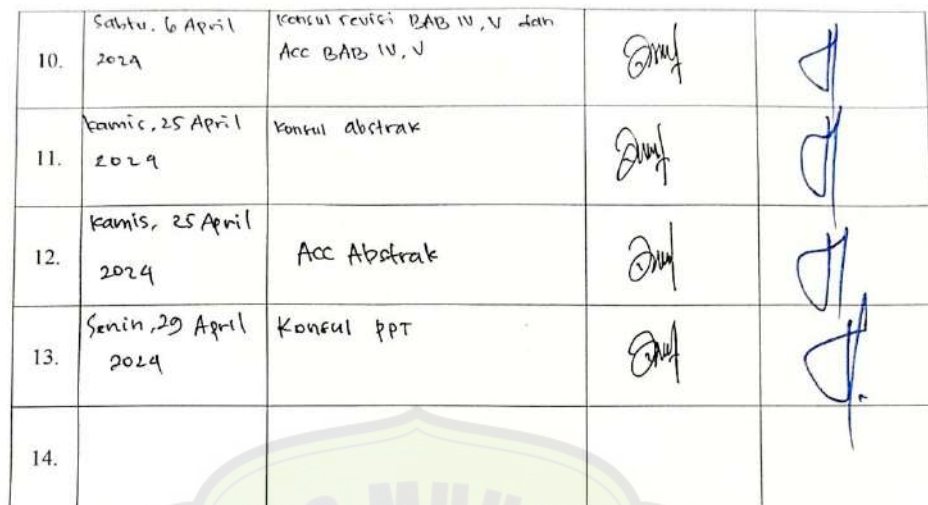 10.
Sabtu, 6 April
2024
Konsul revisi BAB IV, V dan
Acc BAB IV, V
11.
Kamis, 25 April
2024
Konsul abstrak
12.
Kamis, 25 April
2024
Acc Abstrak
13.
Senin, 29 April
2024
Konsul PPT
14.